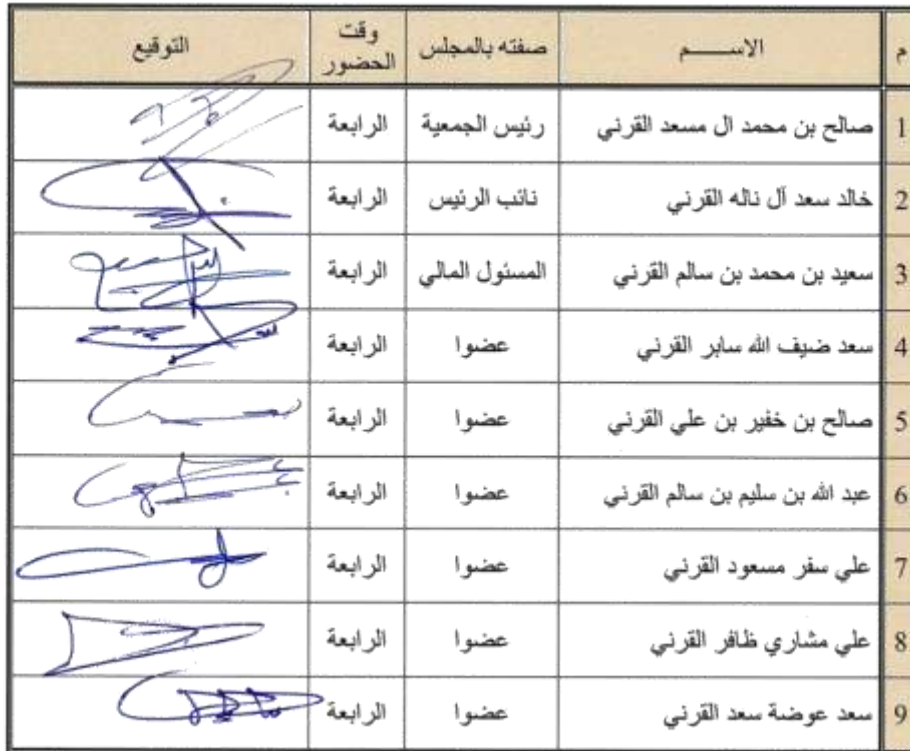 م الاســـــم صفته بالمجلس وقت الحضور التوقيع
1 صالح بن محمد ال مسعد القرني رئيس الجمعية الرابعة
2 خالد سعد آل ناله القرني نائب الرئيس الرابعة
3 سعيد بن محمد بن سالم القرني المسئول المالي الرابعة
4 سعد ضيف الله سابر القرني عضوا الرابعة
5 صالح بن خفير بن علي القرني عضوا الرابعة
6 عبد الله بن سليم بن سالم القرني عضوا الرابعة
7 علي سفر مسعود القرني عضوا الرابعة
8 علي مشاري ظافر القرني عضوا الرابعة
9 سعد عوضة سعد القرني عضوا الرابعة